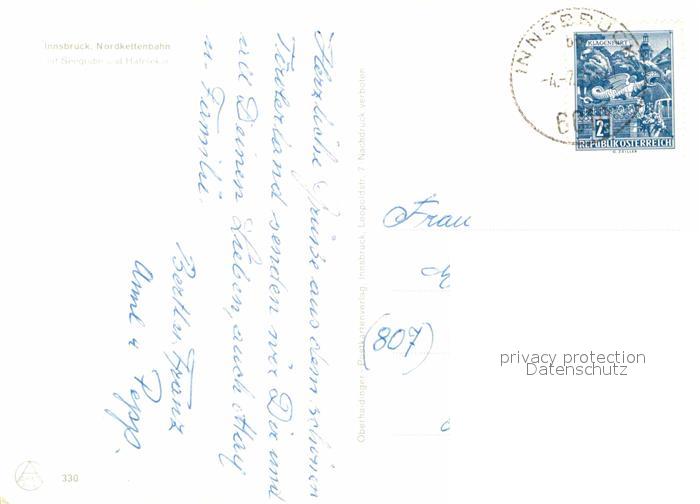 Innsbruck, Nordkettenbahn
mit Seegrube und Hafelekar
Herzliche Grüße aus dem schönen
Tirolerland senden wir Dir und
all Deinen Lieben, auch
u. Familie.
Berthl u. Franz
Annl u Pepp.
Oberhaidinger, Postkartenverlag Innsbruck, Leopoldstr. 7 Nachdruck verboten
INNSBRUCK
KLAGENFURT
2S
REPUBLIK ÖSTERREICH
Frau
(807)
privacy protection
Datenschutz
330